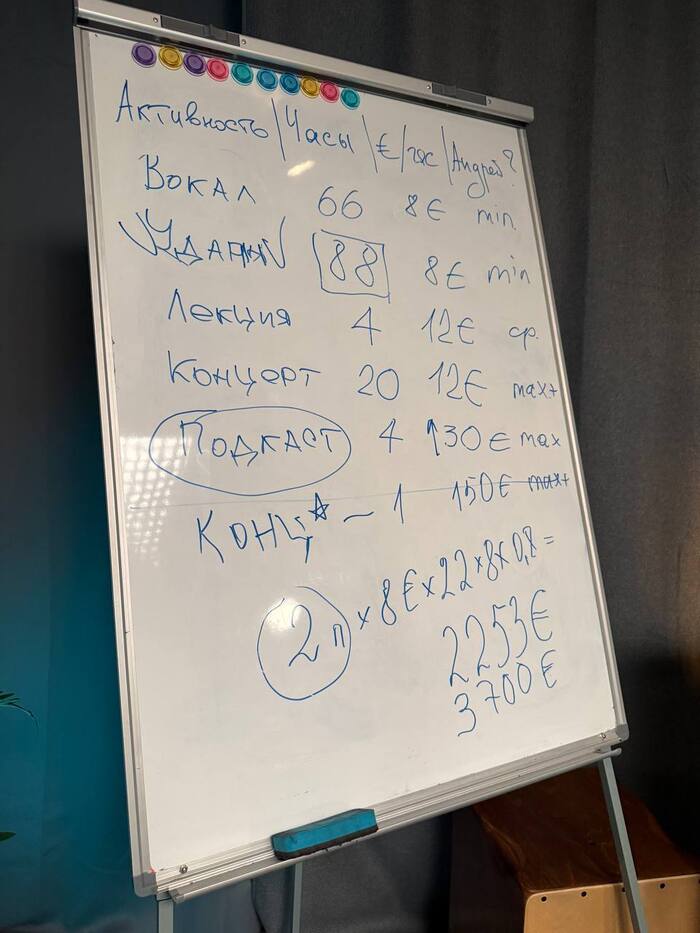 Активность / Часы / € / час / Андрей?
Вокал 66 8€ min.
Ударн 88 8€ min
Лекция 4 12€ ср.
Концерт 20 12€ max+
Подкаст 4 ↑30€ max
Конц☆ – 1 150€ max+
2п × 8€ × 22 × 8 × 0,8 =
2253€
3700€